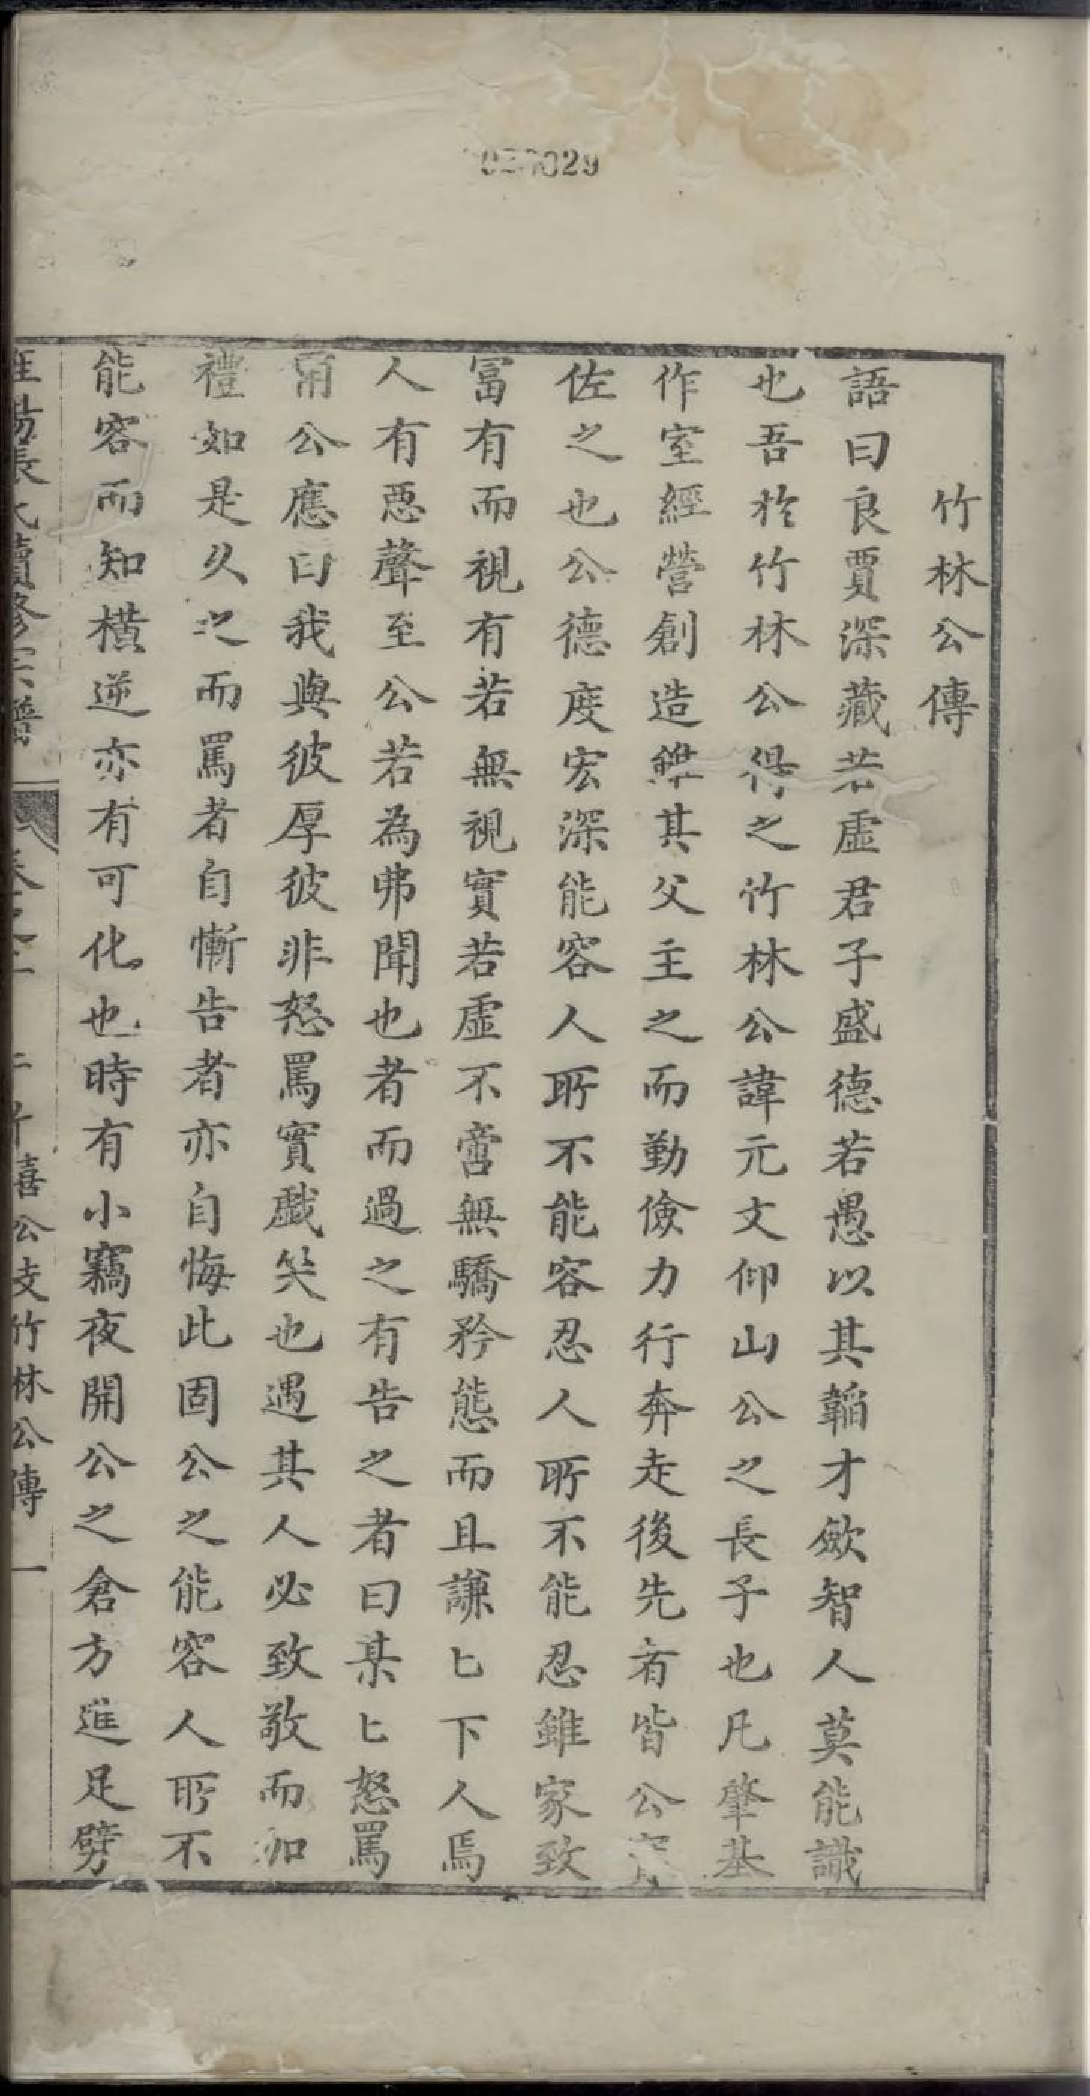 竹林公傳
語曰良賈深藏若虛君子盛德若愚以其韜才歛智人莫能識
也吾於竹林公得之竹林公諱元文仰山公之長子也凡肇基
作室經營創造雖其父主之而勤儉力行奔走後先者皆公實
佐之也公德度宏深能容人所不能容忍人所不能忍雖家致
冨有而視有若無視實若虛不啻無驕矜態而且謙匕下人焉
人有惡聲至公若為弗聞也者而過之有告之者曰某匕怒罵
甭公應曰我與彼厚彼非怒罵實戲笑也遇其人必致敬而加
禮如是久之而罵者自慚告者亦自悔此固公之能容人所不
能容而知橫逆亦有可化也時有小竊夜開公之倉方進足劈
張氏續修宗譜
卷之
禧公支竹林公傳 一
029